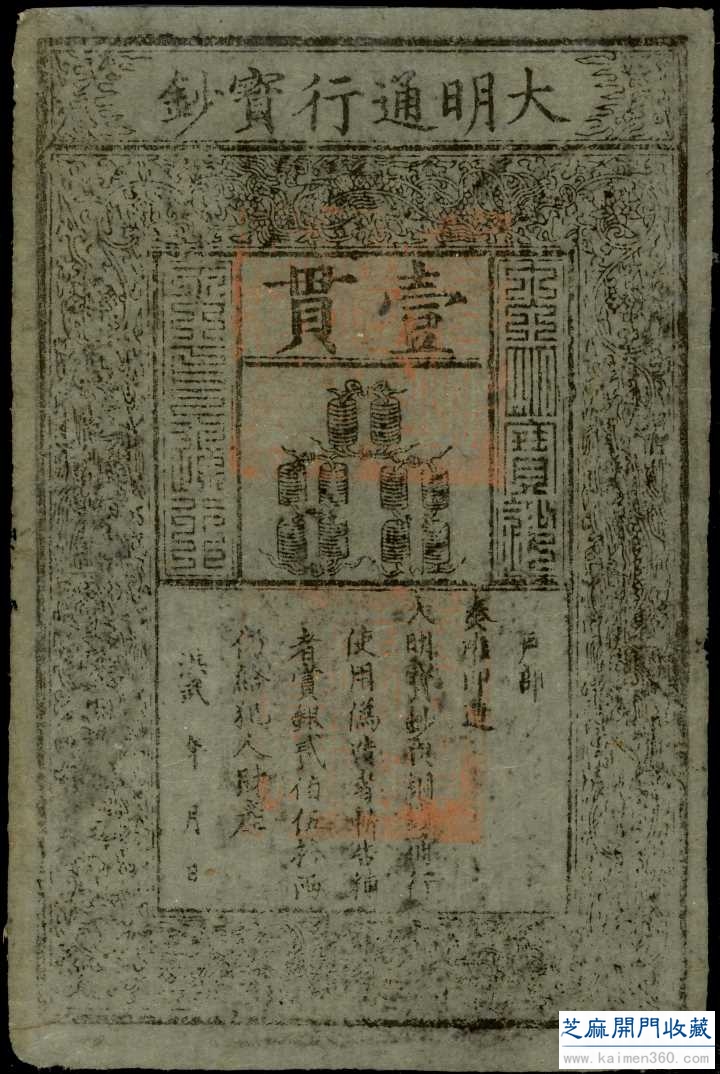 大明通行寶鈔
壹貫
大明寶鈔
天下通行
戶部
奏准印造
大明寶鈔與銅錢通行
使用僞造者斬告捕
者賞銀貳伯伍拾兩
仍給犯人財產
洪武 年 月 日
芝麻開門收藏
www.kaimen360.com